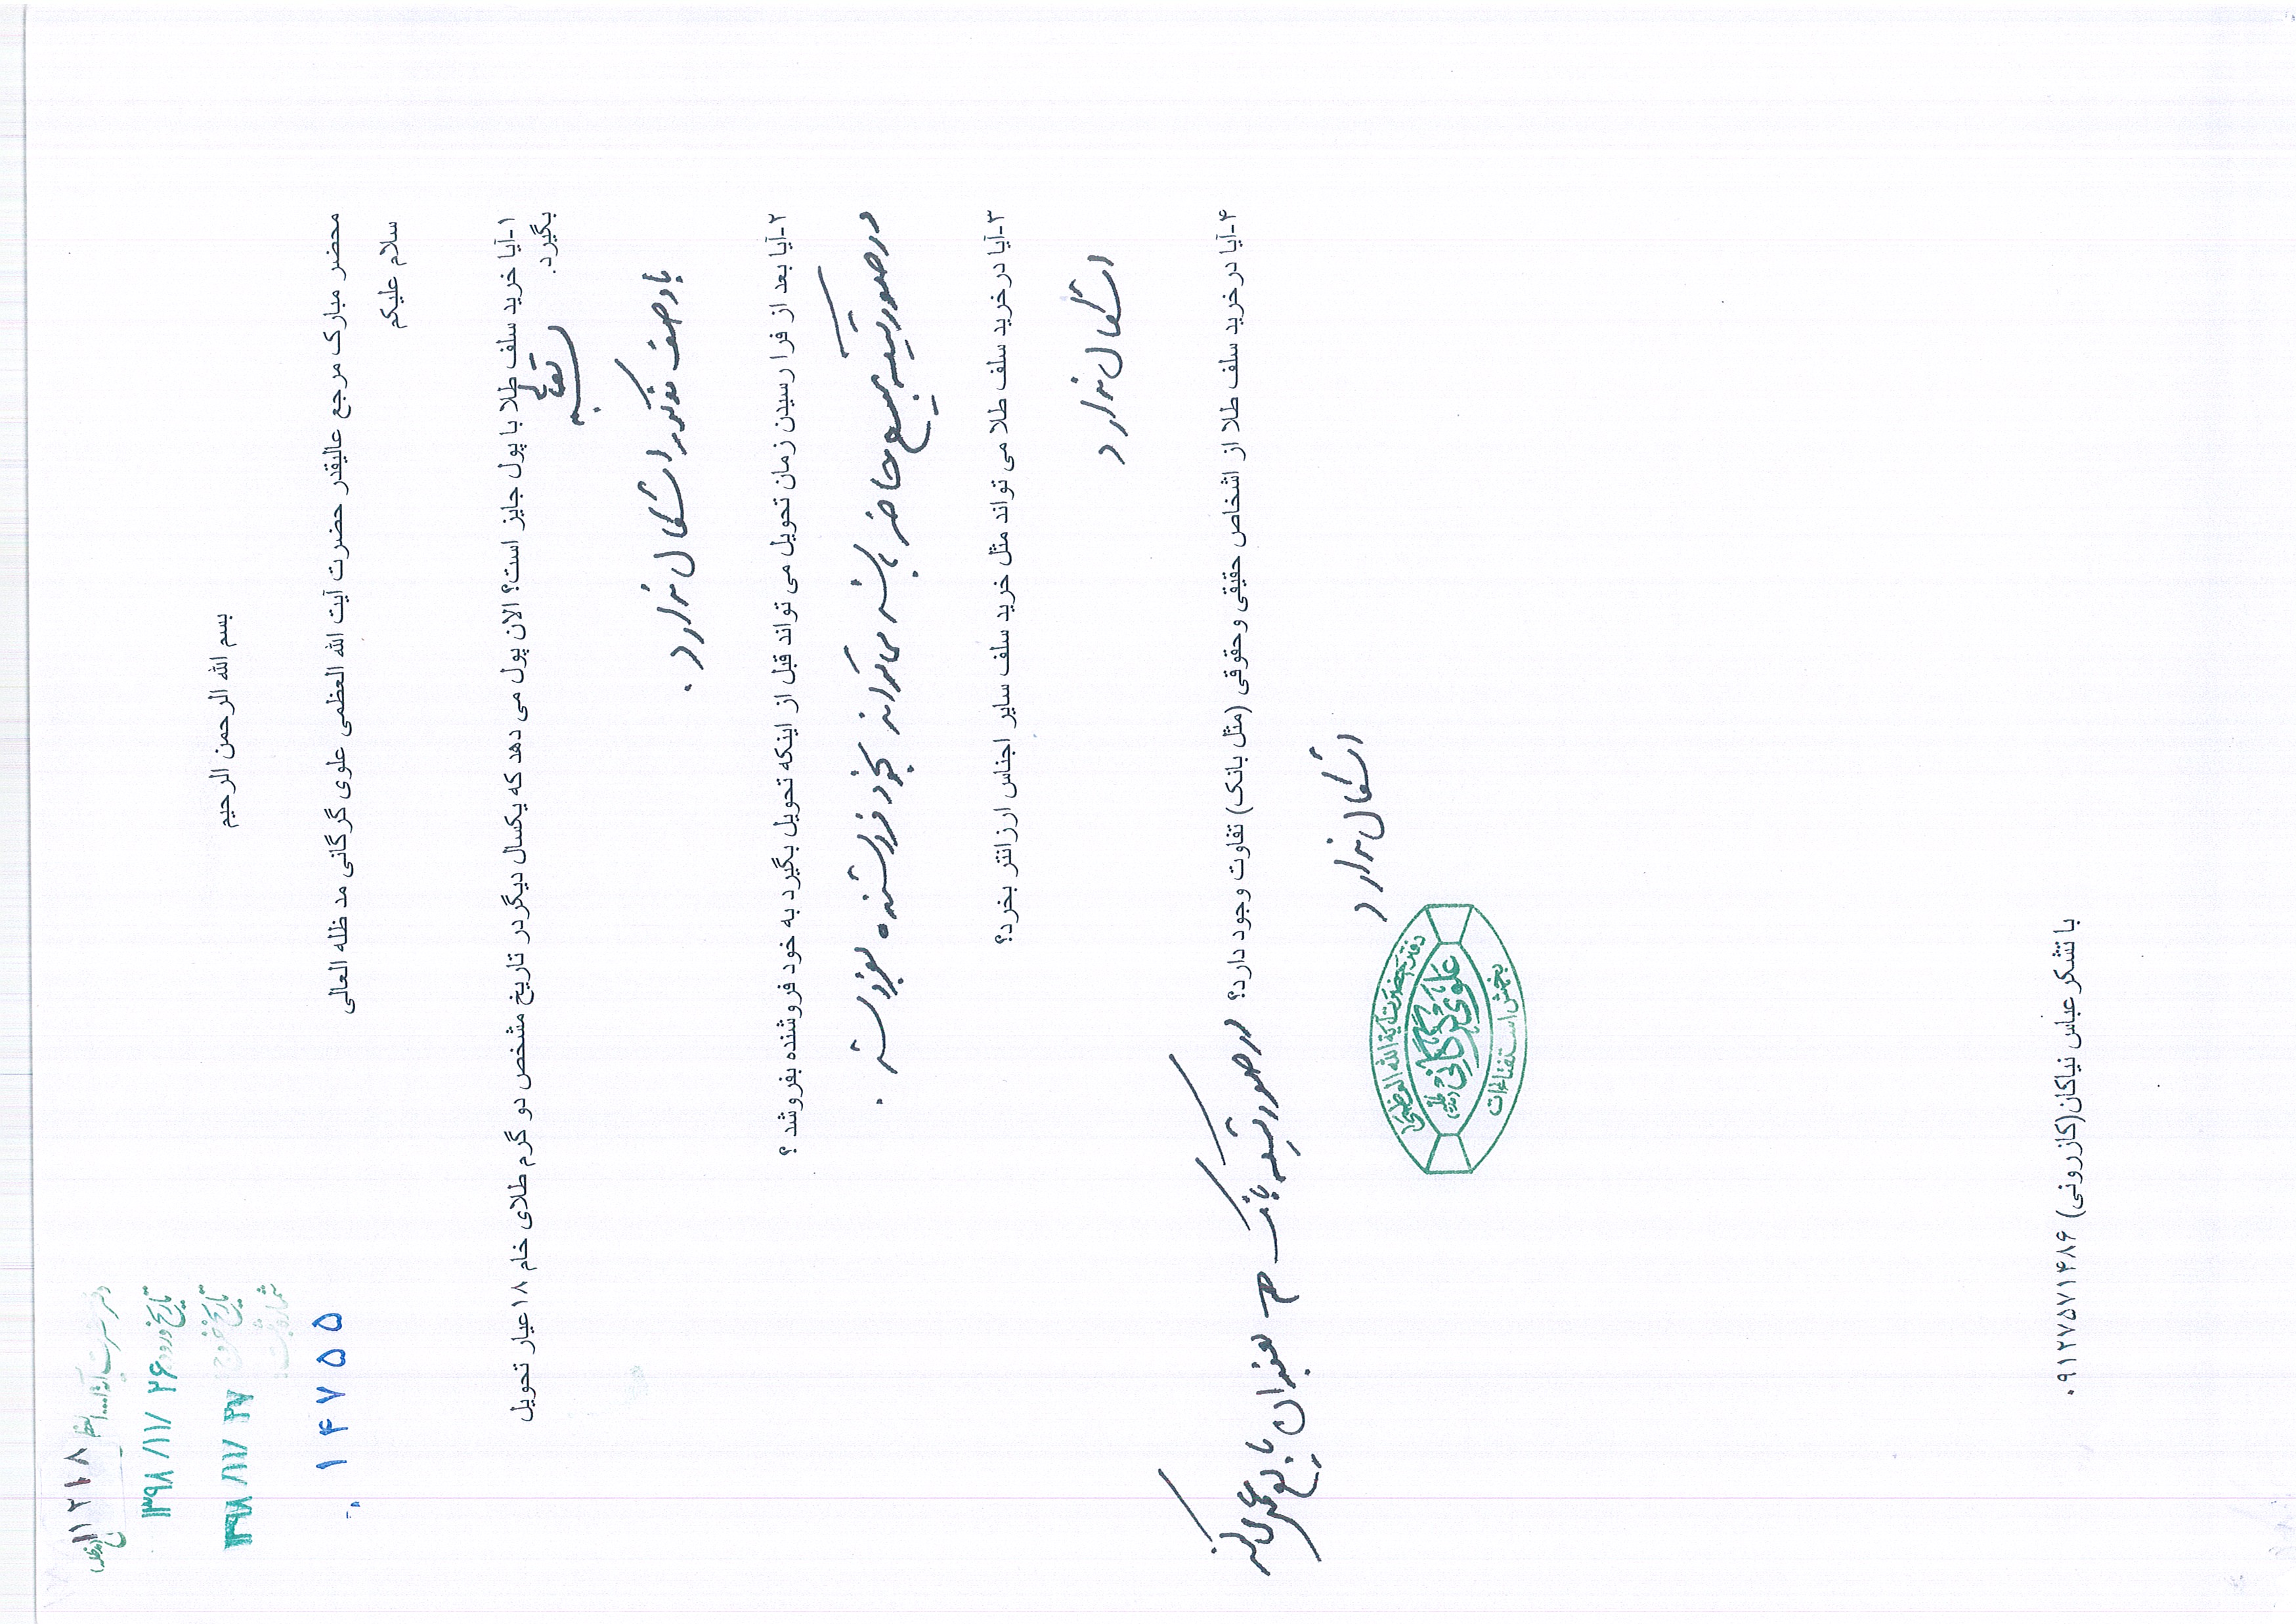 ۱۲۱۸
تاریخ ورود ۱۳۹۸/۱۱/۲۶
تاریخ خروج ۱۳۹۸/۱۱/۲۷
شماره ثبت
۱۴۷۵۵
بسم الله الرحمن الرحیم
محضر مبارک مرجع عالیقدر حضرت آیت الله العظمی علوی گرگانی مد ظله العالی
سلام علیکم
۱-آیا خرید سلف طلا با پول جایز است؟ الان پول می دهد که یکسال دیگردر تاریخ مشخص دو گرم طلای خام ۱۸عیار تحویل
بگیرد.
بسمه تعالی
با وصف مذکور اشکال ندارد.
۲-آیا بعد از فرا رسیدن زمان تحویل می تواند قبل از اینکه تحویل بگیرد به خود فروشنده بفروشد ؟
در صورتیکه مبیع حاضر باشد می تواند بخود فروشنده بفروشد.
۳-آیا درخرید سلف طلا می تواند مثل خرید سلف سایر اجناس ارزانتر بخرد؟
اشکال ندارد
۴-آیا درخرید سلف طلا از اشخاص حقیقی وحقوقی (مثل بانک) تفاوت وجود دارد؟ در صورتیکه بانک هم بعنوان بایع عمل کند
اشکال ندارد
دفتر حضرت آیة الله العظمی
علوی گرگانی
بخش استفتاءات
با تشکر عباس نیاکان(کازرونی) ۰۹۱۲۷۵۷۱۴۸۶